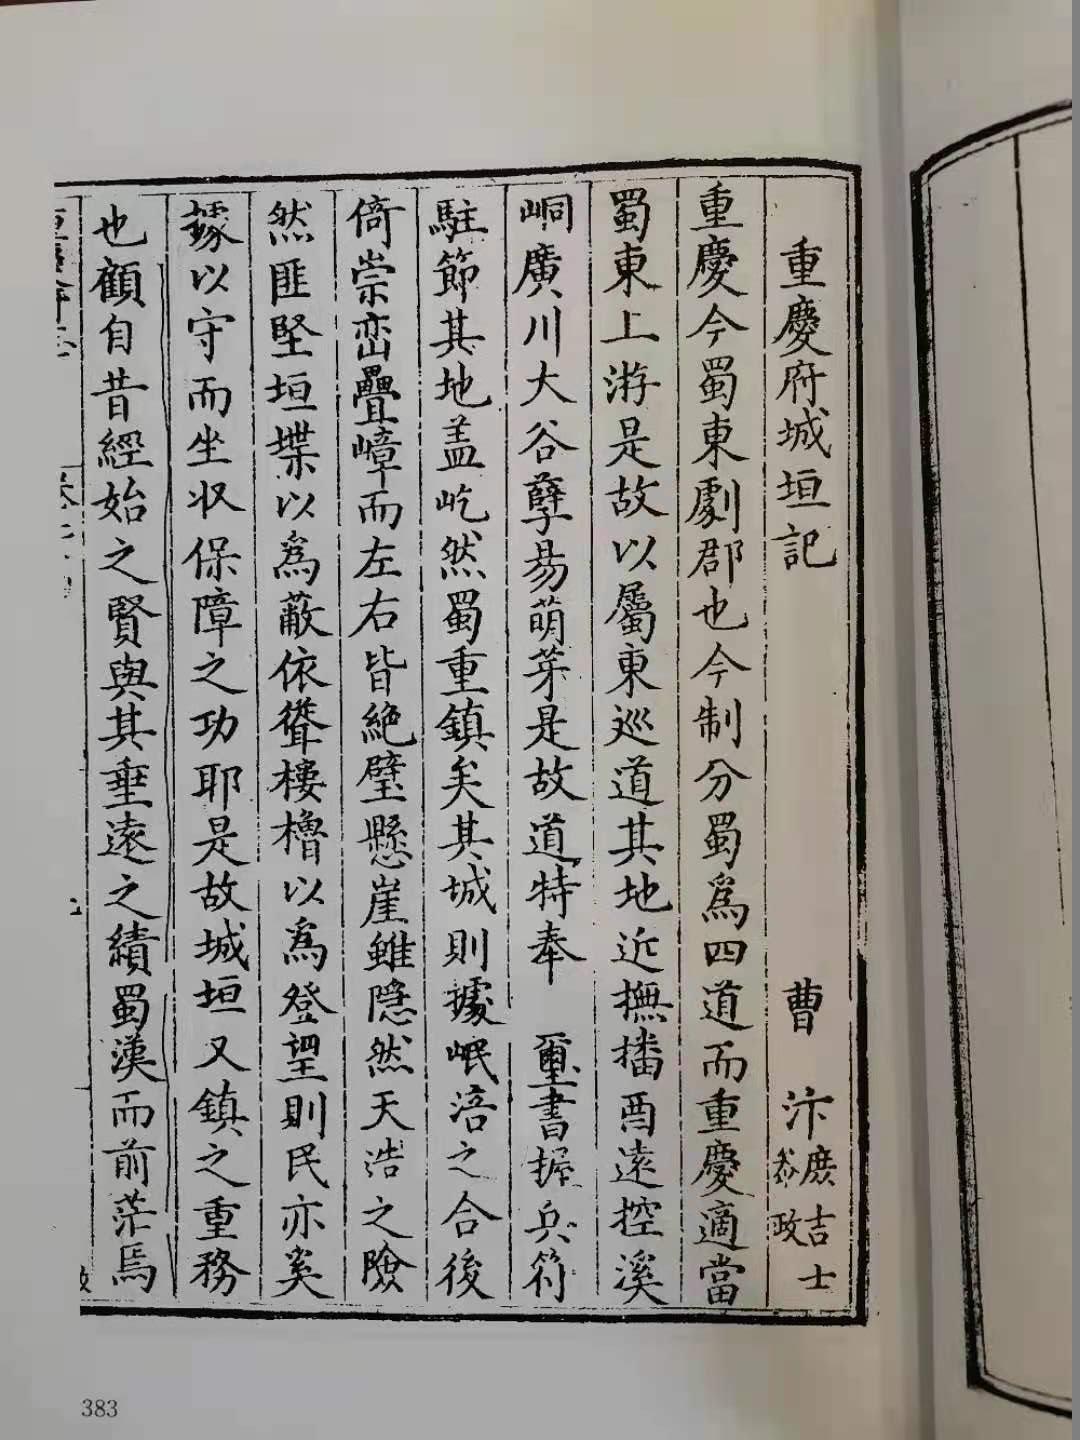 重慶府城垣記 曹汴 庶吉士 叅政
重慶今蜀東劇郡也今制分蜀爲四道而重慶適當
蜀東上游是故以屬東巡道其地近撫播酉遠控溪
峒廣川大谷孽易萌芽是故道特奉 璽書握兵符
駐節其地盖屹然蜀重鎮矣其城則據岷涪之合後
倚崇巒疊嶂而左右皆絶壁懸崖雖隱然天浩之險
然匪堅垣堞以爲蔽依聳樓櫓以爲登望則民亦奚
據以守而坐收保障之功耶是故城垣又鎮之重務
也顧自昔經始之賢與其垂遠之績蜀漢而前茫焉
383